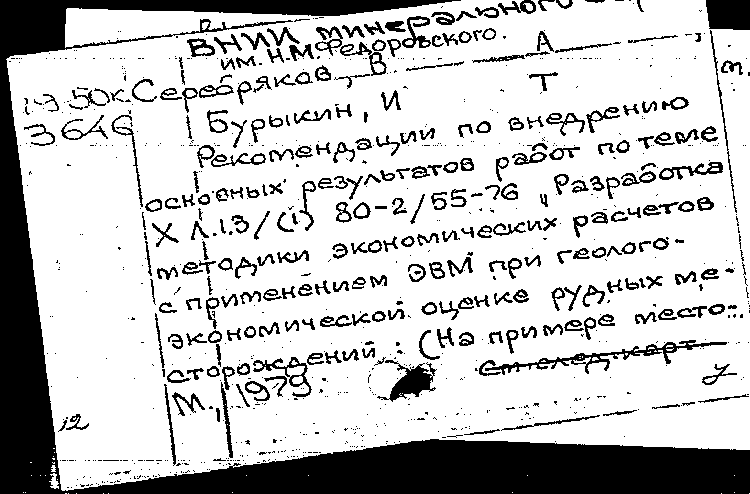 ВНИИ минерального
им. Н.М.Федоровского.
1950к Серебряков, В А
3646 Бурыкин, И Т
Рекомендации по внедрению
основных результатов работ по теме
X Л.1.3/(1) 80-2/55-76 „Разработка
методики экономических расчетов
с применением ЭВМ при геолого-
экономической оценке рудных ме-
сторождений : (На примере место-
М., 1979.
См след карт
12